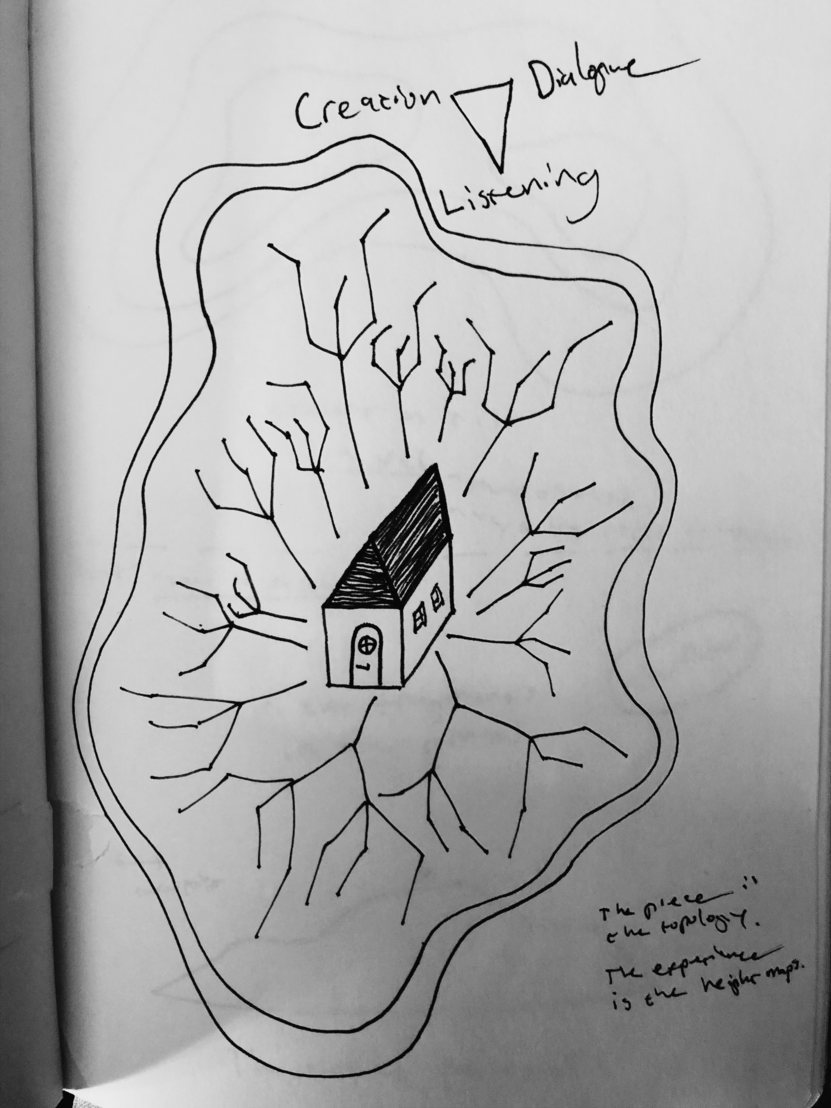 Creation Dialogue
Listening
The piece is
the topology.
The experience
is the height maps.